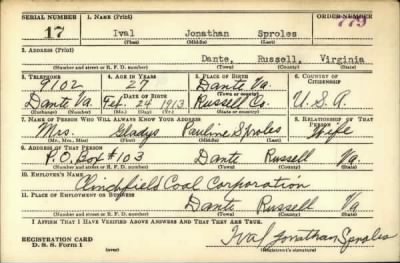 SERIAL NUMBER 1. NAME (Print) ORDER NUMBER
17 Ival Jonathan Sproles 779
(First) (Middle) (Last)
2. ADDRESS (Print)
Dante, Russell, Virginia
(Number and street or R. F. D. number) (Town) (County) (State)
3. TELEPHONE 4. AGE IN YEARS 5. PLACE OF BIRTH 6. COUNTRY OF CITIZENSHIP
9102 27 Dante Va.
DATE OF BIRTH (Town or county)
Dante Va. Feb. 24 1913 Russell Co. U.S.A.
(Exchange) (Number) (Mo.) (Day) (Yr.) (State or country)
7. NAME OF PERSON WHO WILL ALWAYS KNOW YOUR ADDRESS 8. RELATIONSHIP OF THAT PERSON
Mrs. Gladys Pauline Sproles Wife
(Mr., Mrs., Miss) (First) (Middle) (Last)
9. ADDRESS OF THAT PERSON
P.O. Box #103 Dante Russell Va.
(Number and street or R. F. D. number) (Town) (County) (State)
10. EMPLOYER'S NAME
Clinchfield Coal Corporation
11. PLACE OF EMPLOYMENT OR BUSINESS
Dante Russell Va
(Number and street or R. F. D. number) (Town) (County) (State)
I AFFIRM THAT I HAVE VERIFIED ABOVE ANSWERS AND THAT THEY ARE TRUE.
REGISTRATION CARD
D. S. S. Form 1 (over) Ival Jonathan Sproles
(Registrant's signature)